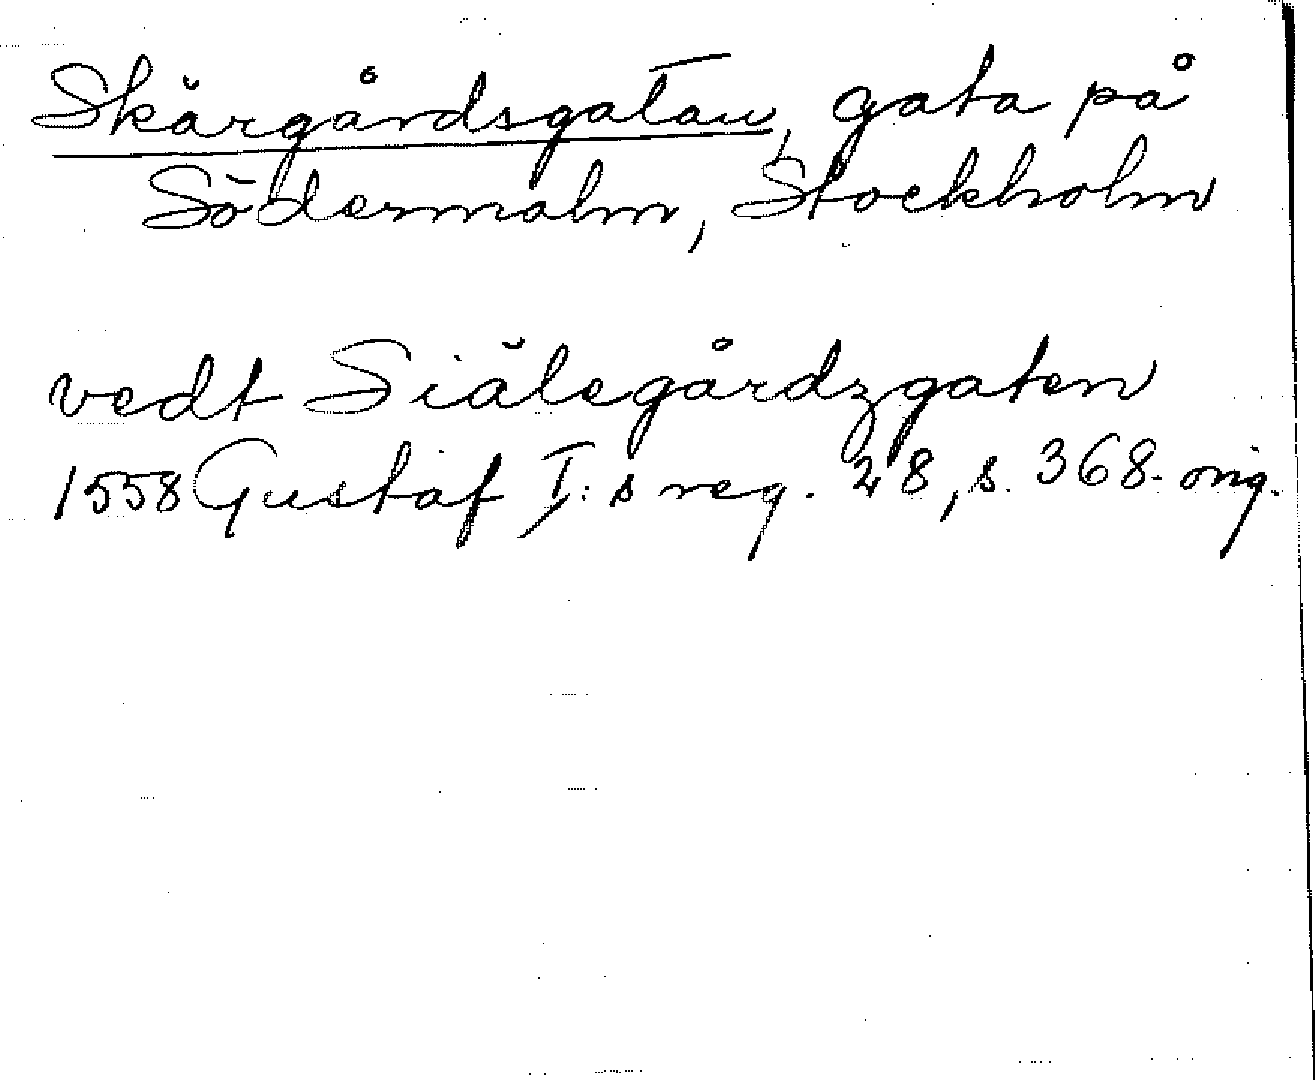 Skärgårdsgatan, gata på
Södermalm, Stockholm
vedt Siälegårdzgaten
1558 Gustaf I:s reg. 28, s. 368. orig.